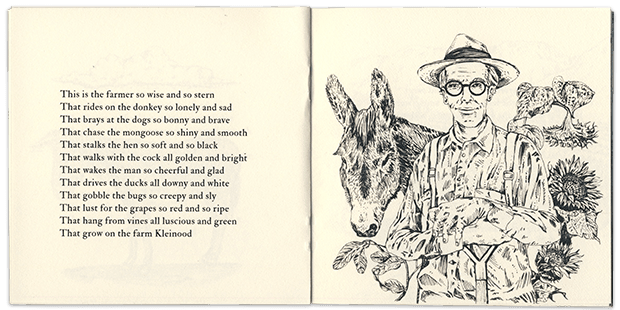 This is the farmer so wise and so stern
That rides on the donkey so lonely and sad
That brays at the dogs so bonny and brave
That chase the mongoose so shiny and smooth
That stalks the hen so soft and so black
That walks with the cock all golden and bright
That wakes the man so cheerful and glad
That drives the ducks all downy and white
That gobble the bugs so creepy and sly
That lust for the grapes so red and so ripe
That hang from vines all luscious and green
That grow on the farm Kleinood